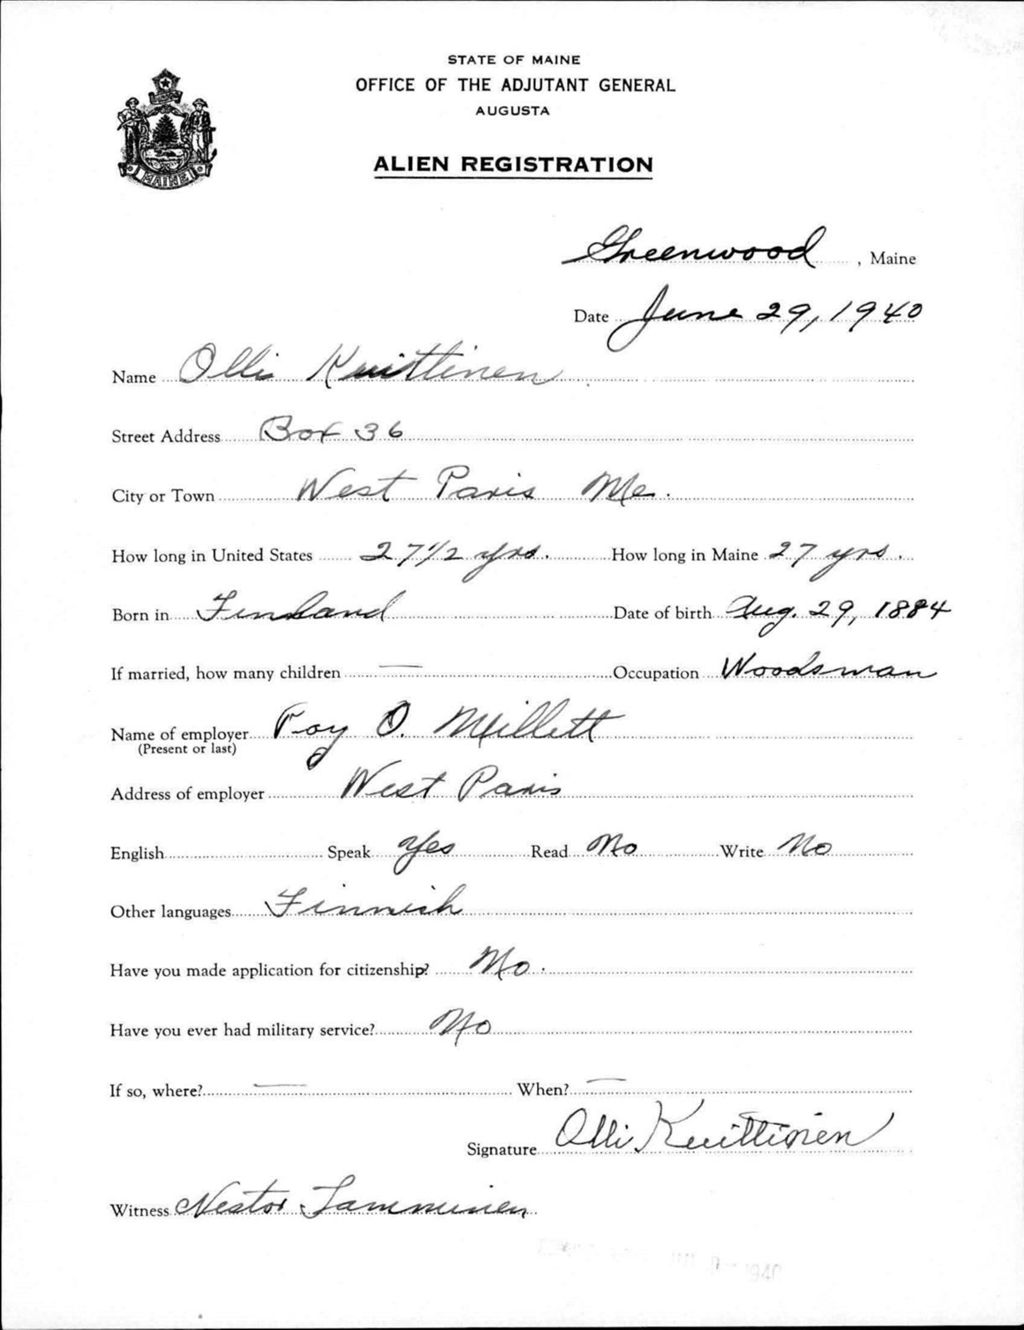 STATE OF MAINE
OFFICE OF THE ADJUTANT GENERAL
AUGUSTA
ALIEN REGISTRATION
MAINE
Greenwood, Maine
Date June 29, 1940
Name Olli Kuittinen
Street Address Box 36
City or Town West Paris Me.
How long in United States 27 1/2 yrs. How long in Maine 27 yrs.
Born in Finland Date of birth Aug. 29, 1884
If married, how many children — Occupation Woodsman
Name of employer Roy O. Millett
(Present or last)
Address of employer West Paris
English Speak Yes Read No Write No
Other languages Finnish
Have you made application for citizenship? No.
Have you ever had military service? No
If so, where? — When? —
Signature Olli Kuittinen
Witness Nestor Tamminen